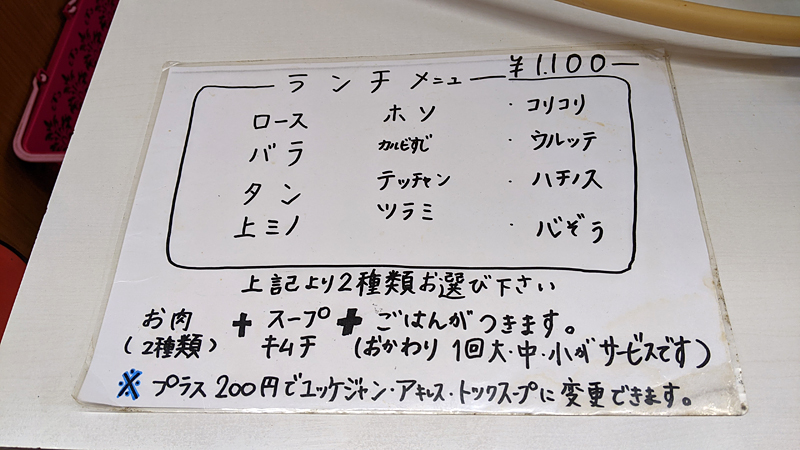 ランチメニュー ¥1,100
ロース ホソ ・コリコリ
バラ カルビすじ ・ウルッテ
タン テッチャン ・ハチノス
上ミノ ツラミ ・心ぞう
上記より2種類お選び下さい
お肉 + スープ + ごはんがつきます。
(2種類) キムチ (おかわり1回大・中・小がサービスです)
※プラス200円でユッケジャン・アキレス・トックスープに変更できます。